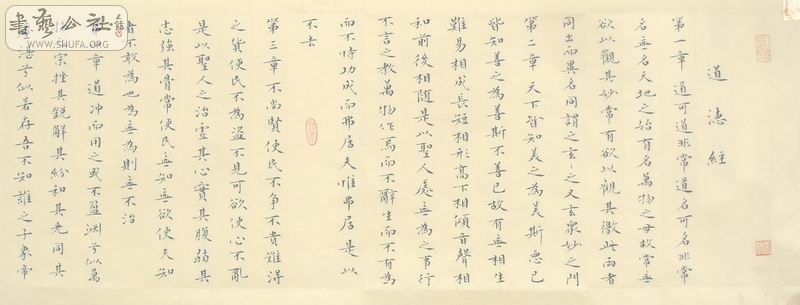 道悳經
第一章 道可道非常道名可名非常
名無名天地之始有名萬物之母故常無
欲以觀其妙常有欲以觀其徼此兩者
同出而異名同謂之玄〻之又玄衆妙之門
第二章 天下皆知美之為美斯惡已
皆知善之為善斯不善已故有無相生
難易相成長短相形高下相傾音聲相
和前後相隨是以聖人處無為之事行
不言之教萬物作焉而不辭生而不有為
而不恃功成而弗居夫惟弗居是以
不去
第三章 不尚賢使民不爭不貴難得
之貨使民不為盜不見可欲使心不亂
是以聖人之治虛其心實其腹弱其
志強其骨常使民無知無欲使夫知
者不敢為也為無為則無不治
章 道沖而用之或不盈淵兮似萬
宗挫其銳解其紛和其光同其
湛兮似若存吾不知誰之子象帝
書藝公社
WWW.SHUFA.ORG